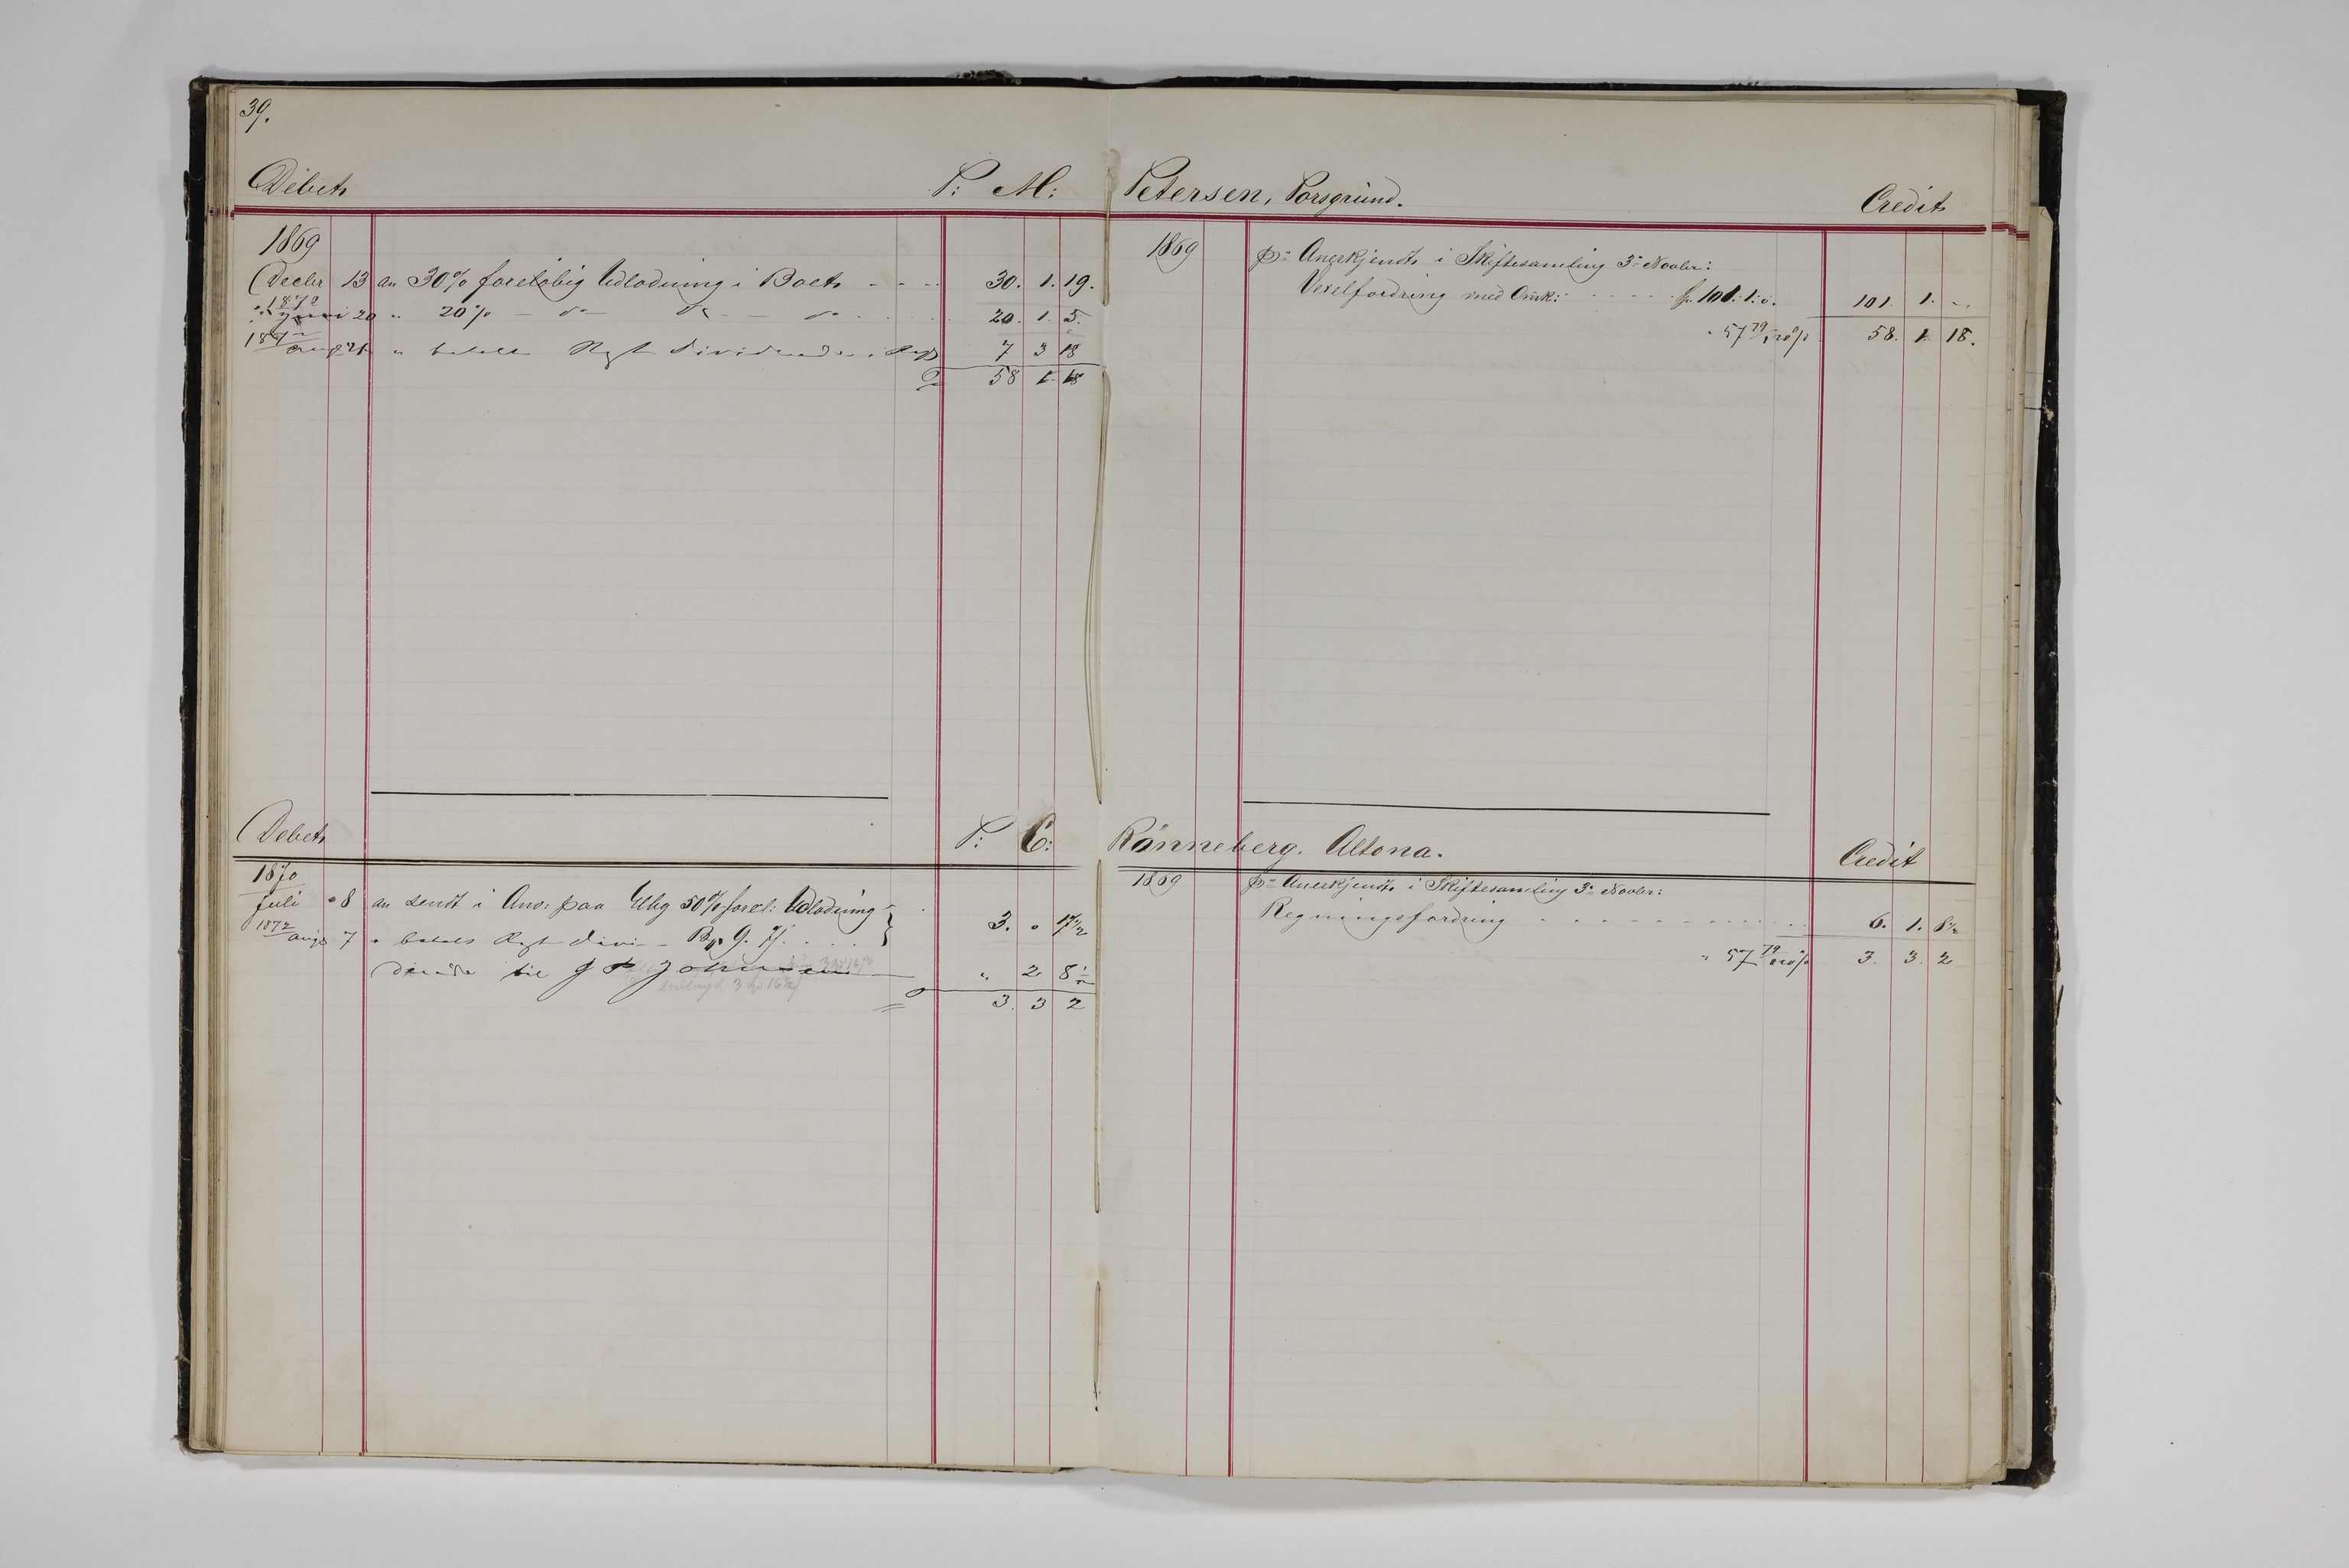 39.
Debet P: M: Petersen, Porsgrund. Credit
1869
Decbr 13 an 30% foreløbig Udlodning i Boet 30. 1. 19.
1870
Juni 20 " 20% — do — do 20. 1. 5.
1872
Aug 21 " betalt Rest Dividende 7 3 18
58 1 18
1869 pr Anerkjendt i Skiftesamling 3 Novbr:
Vexelfordring med Omk: Sp. 101. 1. 0. 101. 1. "
" 57 79/120 % 58. 1. 18.
Debet P: C: Rönneberg. Altona. Credit
1870
Juli 8 an sendt i Anv: paa Hbg 50% forel: Udlodning 3. 0 17 1/2
1872
Aug 7 " betalt Rest Divi
til Johnsen " 2 8 1/2
3. 3 2
1869 pr Anerkjendt i Skiftesamling 3 Novbr:
Regningsfordring 6. 1. 8 1/2
" 57 79/120 % 3. 3. 2